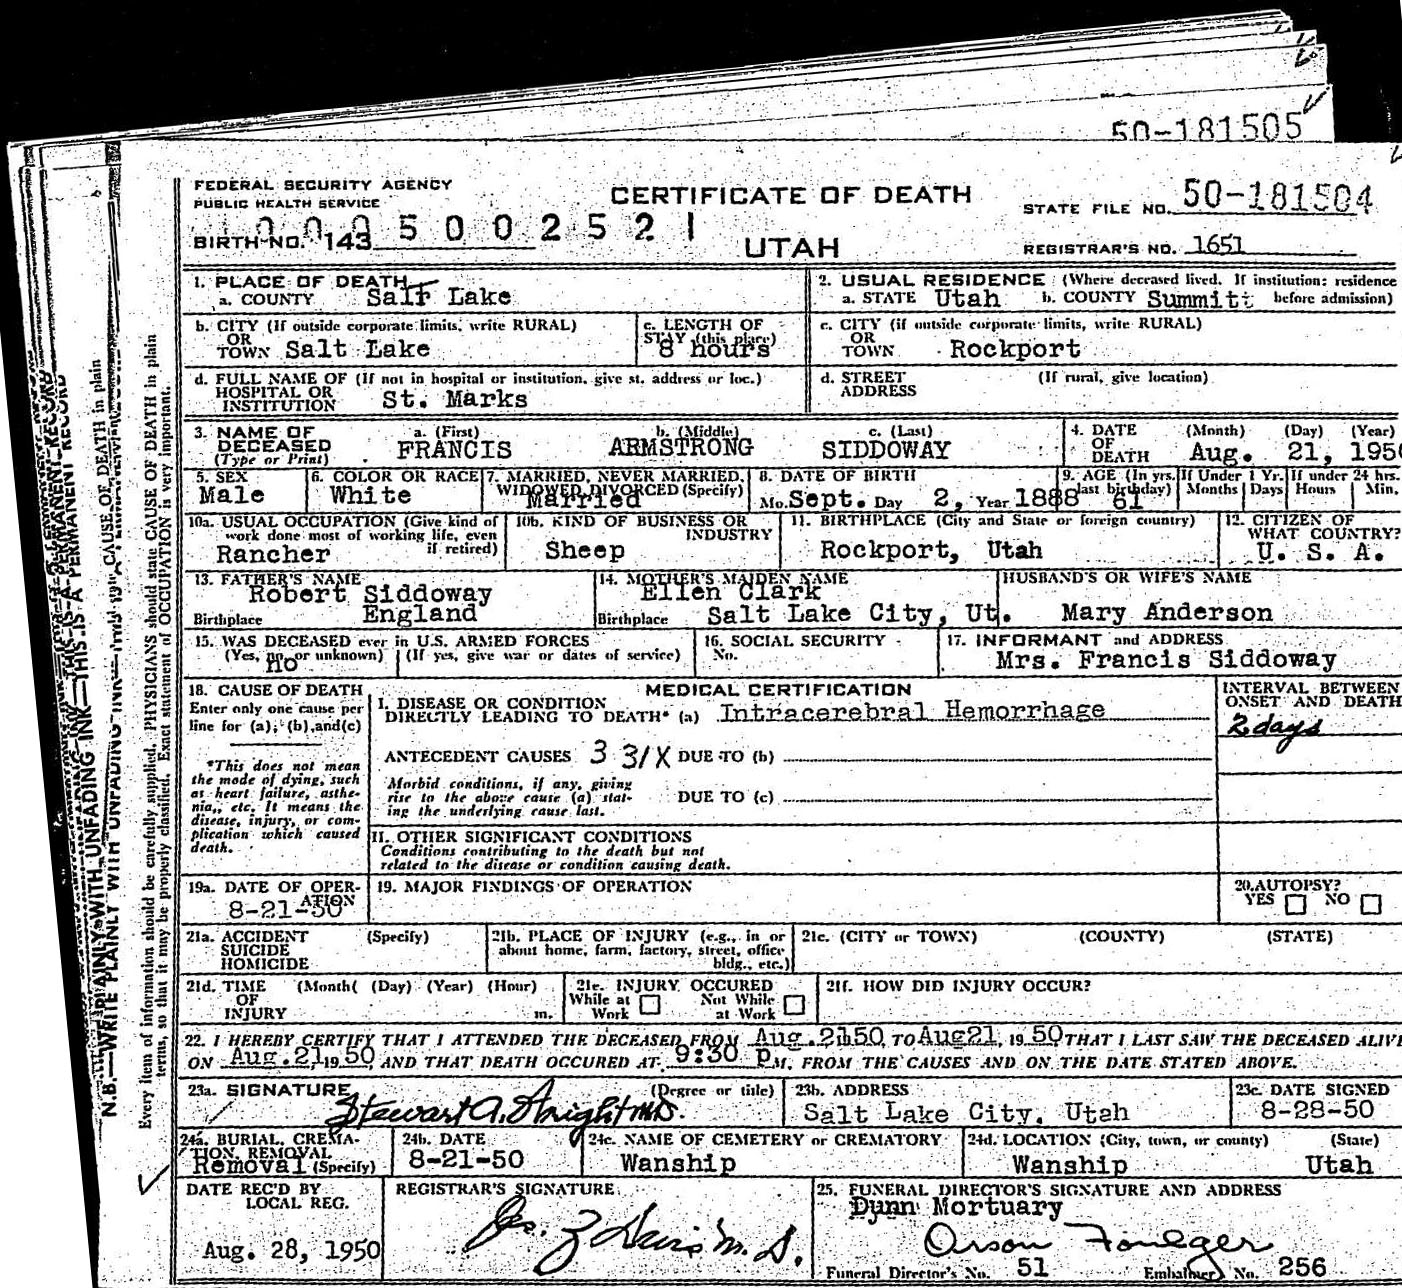 50-181505
FEDERAL SECURITY AGENCY
PUBLIC HEALTH SERVICE
CERTIFICATE OF DEATH
STATE FILE NO. 50-181504
BIRTH NO. 143
0095002521
UTAH
REGISTRAR'S NO. 1651
1. PLACE OF DEATH
a. COUNTY Salt Lake
2. USUAL RESIDENCE (Where deceased lived. If institution: residence
a. STATE Utah b. COUNTY Summitt before admission)
b. CITY (If outside corporate limits, write RURAL)
OR
TOWN Salt Lake
c. LENGTH OF
STAY (this place)
8 hours
c. CITY (if outside corporate limits, write RURAL)
OR
TOWN Rockport
d. FULL NAME OF (If not in hospital or institution, give st. address or loc.)
HOSPITAL OR
INSTITUTION St. Marks
d. STREET (If rural, give location)
ADDRESS
3. NAME OF
DECEASED
(Type or Print)
a. (First) b. (Middle) c. (Last)
FRANCIS ARMSTRONG SIDDOWAY
4. DATE (Month) (Day) (Year)
OF
DEATH Aug. 21, 1950
5. SEX
Male
6. COLOR OR RACE
White
7. MARRIED, NEVER MARRIED,
WIDOWED, DIVORCED (Specify)
Married
8. DATE OF BIRTH
Mo. Sept. Day 2, Year 1888
9. AGE (In yrs.
last birthday)
61
If Under 1 Yr.
Months Days
If under 24 hrs.
Hours Min.
10a. USUAL OCCUPATION (Give kind of
work done most of working life, even
if retired)
Rancher
10b. KIND OF BUSINESS OR
INDUSTRY
Sheep
11. BIRTHPLACE (City and State or foreign country)
Rockport, Utah
12. CITIZEN OF
WHAT COUNTRY?
U. S. A.
13. FATHER'S NAME
Robert Siddoway
Birthplace England
14. MOTHER'S MAIDEN NAME
Ellen Clark
Birthplace Salt Lake City, Ut.
HUSBAND'S OR WIFE'S NAME
Mary Anderson
15. WAS DECEASED ever in U.S. ARMED FORCES
(Yes, no, or unknown) (If yes, give war or dates of service)
no
16. SOCIAL SECURITY
No.
17. INFORMANT and ADDRESS
Mrs. Francis Siddoway
18. CAUSE OF DEATH
Enter only one cause per
line for (a), (b), and (c)
*This does not mean
the mode of dying, such
as heart failure, asthe-
nia, etc. It means the
disease, injury, or com-
plication which caused
death.
MEDICAL CERTIFICATION
I. DISEASE OR CONDITION
DIRECTLY LEADING TO DEATH* (a) Intracerebral Hemorrhage
INTERVAL BETWEEN
ONSET AND DEATH
2 days
ANTECEDENT CAUSES 331X DUE TO (b)
Morbid conditions, if any, giving
rise to the above cause (a) stat-
ing the underlying cause last.
DUE TO (c)
II. OTHER SIGNIFICANT CONDITIONS
Conditions contributing to the death but not
related to the disease or condition causing death.
19a. DATE OF OPER-
ATION
8-21-50
19. MAJOR FINDINGS OF OPERATION
20. AUTOPSY?
YES NO
21a. ACCIDENT (Specify)
SUICIDE
HOMICIDE
21b. PLACE OF INJURY (e.g., in or
about home, farm, factory, street, office
bldg., etc.)
21c. (CITY or TOWN) (COUNTY) (STATE)
21d. TIME (Month( (Day) (Year) (Hour)
OF
INJURY m.
21e. INJURY OCCURED
While at Work Not While at Work
21f. HOW DID INJURY OCCUR?
22. I HEREBY CERTIFY THAT I ATTENDED THE DECEASED FROM Aug. 21, 50 TO Aug 21, 19 50 THAT I LAST SAW THE DECEASED ALIVE
ON Aug. 21, 19 50 AND THAT DEATH OCCURED AT 9:30 p M. FROM THE CAUSES AND ON THE DATE STATED ABOVE.
23a. SIGNATURE (Degree or title)
Stewart A. Wright MD.
23b. ADDRESS
Salt Lake City, Utah
23c. DATE SIGNED
8-28-50
24a. BURIAL, CREMA-
TION, REMOVAL
Removal (Specify)
24b. DATE
8-21-50
24c. NAME OF CEMETERY or CREMATORY
Wanship
24d. LOCATION (City, town, or county) (State)
Wanship Utah
DATE REC'D BY
LOCAL REG.
Aug. 28, 1950
REGISTRAR'S SIGNATURE
25. FUNERAL DIRECTOR'S SIGNATURE AND ADDRESS
Dunn Mortuary
Orson Foulger
Funeral Director's No. 51 Embalmer's No. 256
N.B.—WRITE PLAINLY WITH UNFADING INK—THIS IS A PERMANENT RECORD
Every item of information should be carefully supplied. PHYSICIANS should state CAUSE OF DEATH in plain
terms, so that it may be properly classified. Exact statement of OCCUPATION is very important.